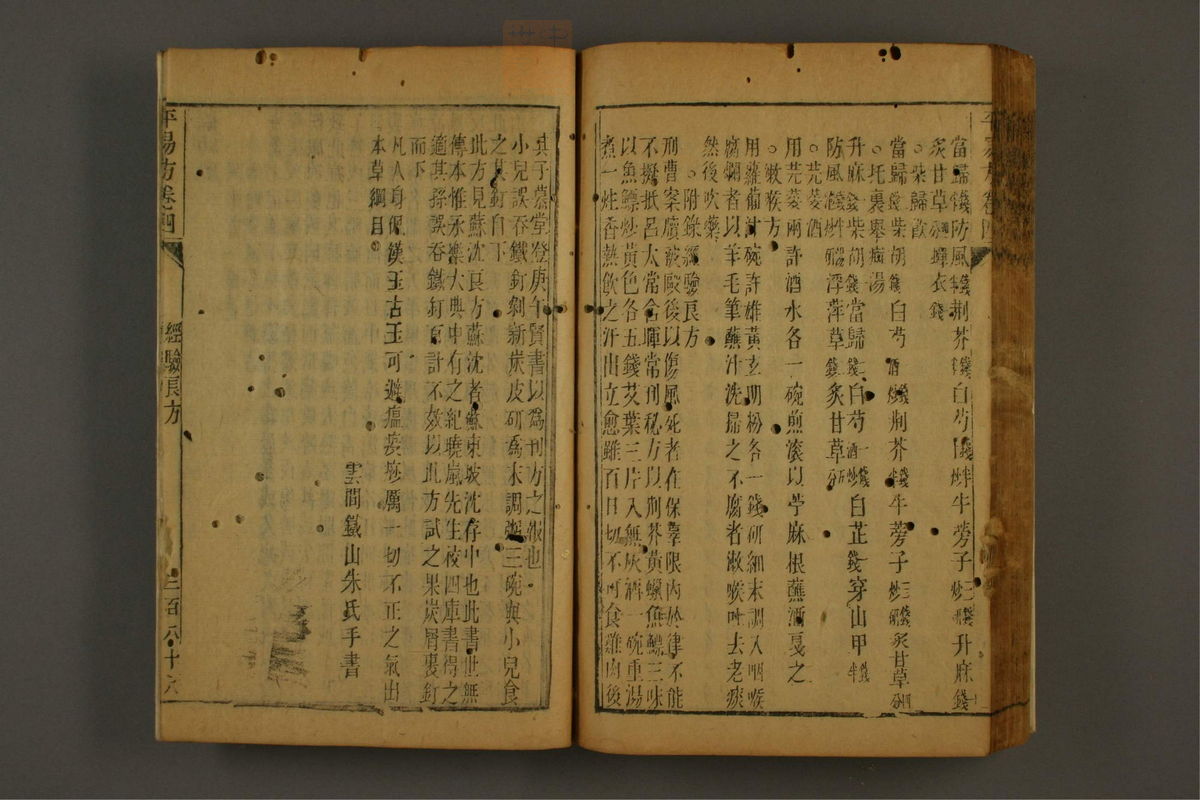 當歸錢防風錢荆芥錢白芍錢半牛蒡子炒研升麻錢
炙甘草蟬衣錢
○柴歸飲
當歸錢柴胡錢白芍酒炒荆芥錢半牛蒡子三錢炒研炙甘草
○托裏舉癍湯
升麻錢柴胡錢當歸錢白芍一錢酒炒白芷錢穿山甲半錢
防風浮萍草錢炙甘草五分
○芫荽酒
用芫荽兩許酒水各一碗煎滾以苧麻根蘸酒戛之
○漱喉方
用蘿蔔汁碗許雄黃玄明粉各一錢研細末調入咽喉
腐爛者以羊毛筆蘸汁洗掃之不腐者漱喉吐去老痰
然後吹藥
○附錄經驗良方
刑曹案牘被毆後以傷風死者在保辜限內於律不能
不擬抵呂太常含暉常刊秘方以荆芥黃蠟魚鰾三味
以魚鰾炒黃色各五錢艾葉三片入無灰酒一碗重湯
煮一炷香熱飲之汗出立愈雖百日切不可食雞肉後
其子慕堂登庚午賢書以為刊方之報也
小兒誤吞鐵釘剝新炭皮研為末調粥三碗與小兒食
之其釘自下
此方見蘇沈良方蘇沈者蘇東坡沈存中也此書世無
傳本惟永樂大典中有之紀曉嵐先生校四庫書得之
適其孫誤吞鐵釘百計不效以此方試之果炭屑裹釘
而下
凡人身佩漢玉古玉可避瘟疫癘一切不正之氣出
本草綱目
雲間鐵山朱氏手書
平易方卷四
經驗良方
三百八十六